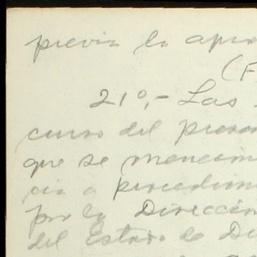 previa la apro
(F
21º,- Las
curso del presen
que se mencion
cia a procedimi
por la Dirección
del Estado de De